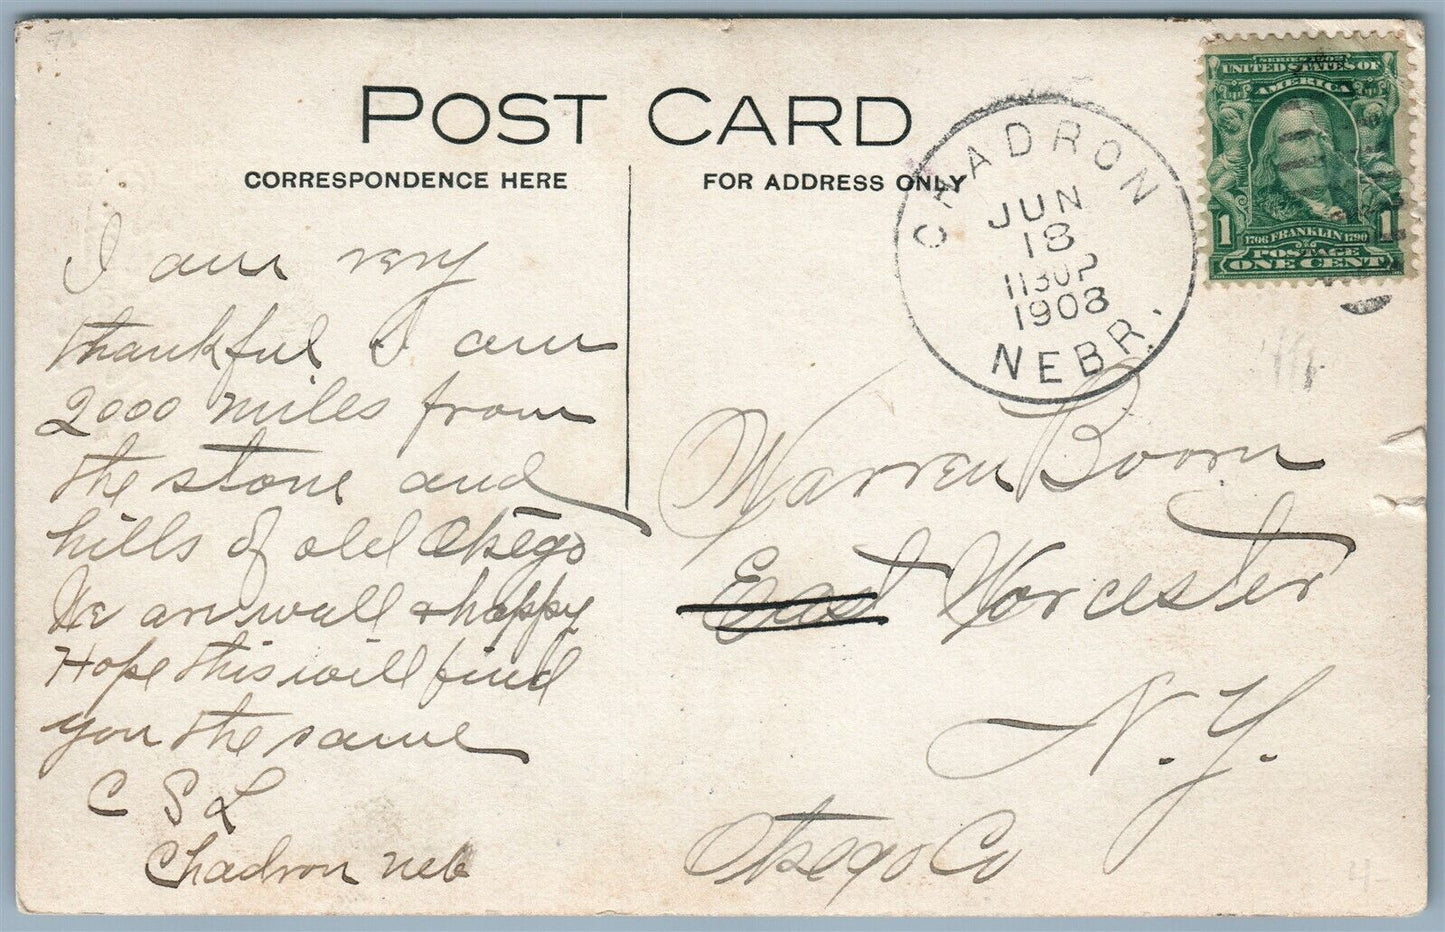 POST CARD
CORRESPONDENCE HERE
FOR ADDRESS ONLY
CHADRON
JUN
18
1130P
1908
NEBR.
SERIES 1902
UNITED STATES OF
AMERICA
1 1
1706 FRANKLIN 1790
POSTAGE
ONE CENT
I am very
thankful I am
2000 miles from
the stone and
hills of old Otsego
We are well & happy
Hope this will find
you the same
C S L
Chadron Neb
Warren Boorn
East Worcester
N.Y.
Otsego Co